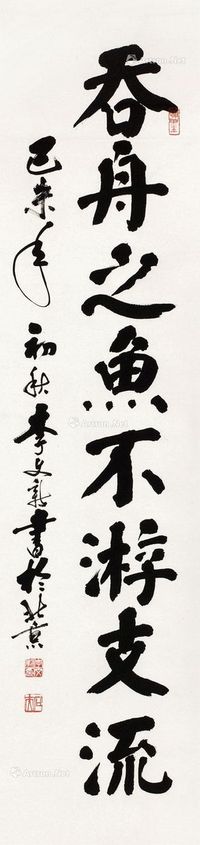 吞舟之魚不游支流
己未年初秋李文新書於北京